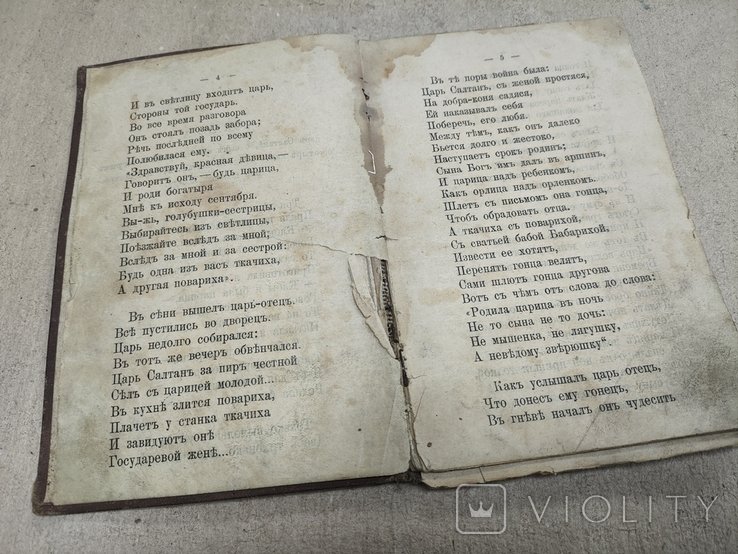 — 4 —
И въ свѣтлицу входитъ царь,
Стороны той государь.
Во все время разговора
Онъ стоялъ позадь забора;
Рѣчь послѣдней по всему
Полюбилася ему.
«Здравствуй, красная дѣвица,—
Говоритъ онъ,—будь царица,
И роди богатыря
Мнѣ къ исходу сентября.
Вы-жъ, голубушки-сестрицы,
Выбирайтесь изъ свѣтлицы,
Поѣзжайте вслѣдъ за мной;
Вслѣдъ за мной и за сестрой:
Будь одна изъ васъ ткачиха,
А другая повариха».
Въ сѣни вышелъ царь-отецъ.
Всѣ пустились во дворецъ.
Царь недолго собирался:
Въ тотъ же вечеръ обвѣнчался.
Царь Салтанъ за пиръ честной
Сѣлъ съ царицей молодой...
Въ кухнѣ злится повариха,
Плачетъ у станка ткачиха
И завидуютъ онѣ
Государевой женѣ...
— 5 —
Въ тѣ поры война была:
Царь Салтанъ, съ женой простяся,
На добра-коня садяся,
Ей наказывалъ себя
Поберечь, его любя.
Между тѣмъ, какъ онъ далеко
Бьется долго и жестоко,
Наступаетъ срокъ родин;
Сына Богъ имъ далъ въ аршинъ,
И царица надъ ребенкомъ,
Какъ орлица надъ орленкомъ.
Шлетъ съ письмомъ она гонца,
Чтобъ обрадовать отца.
А ткачиха съ поварихой,
Съ сватьей бабой Бабарихой
Извести ее хотятъ,
Перенять гонца велятъ,
Сами шлютъ гонца другова
Вотъ съ чѣмъ отъ слова до слова:
«Родила царица въ ночь
Не то сына не то дочь:
Не мышенка, не лягушку,
А невѣдому звѣрюшку".
Какъ услышалъ царь отецъ,
Что донесъ ему гонецъ,
Въ гнѣвѣ началъ онъ чудесить
VIOLITY